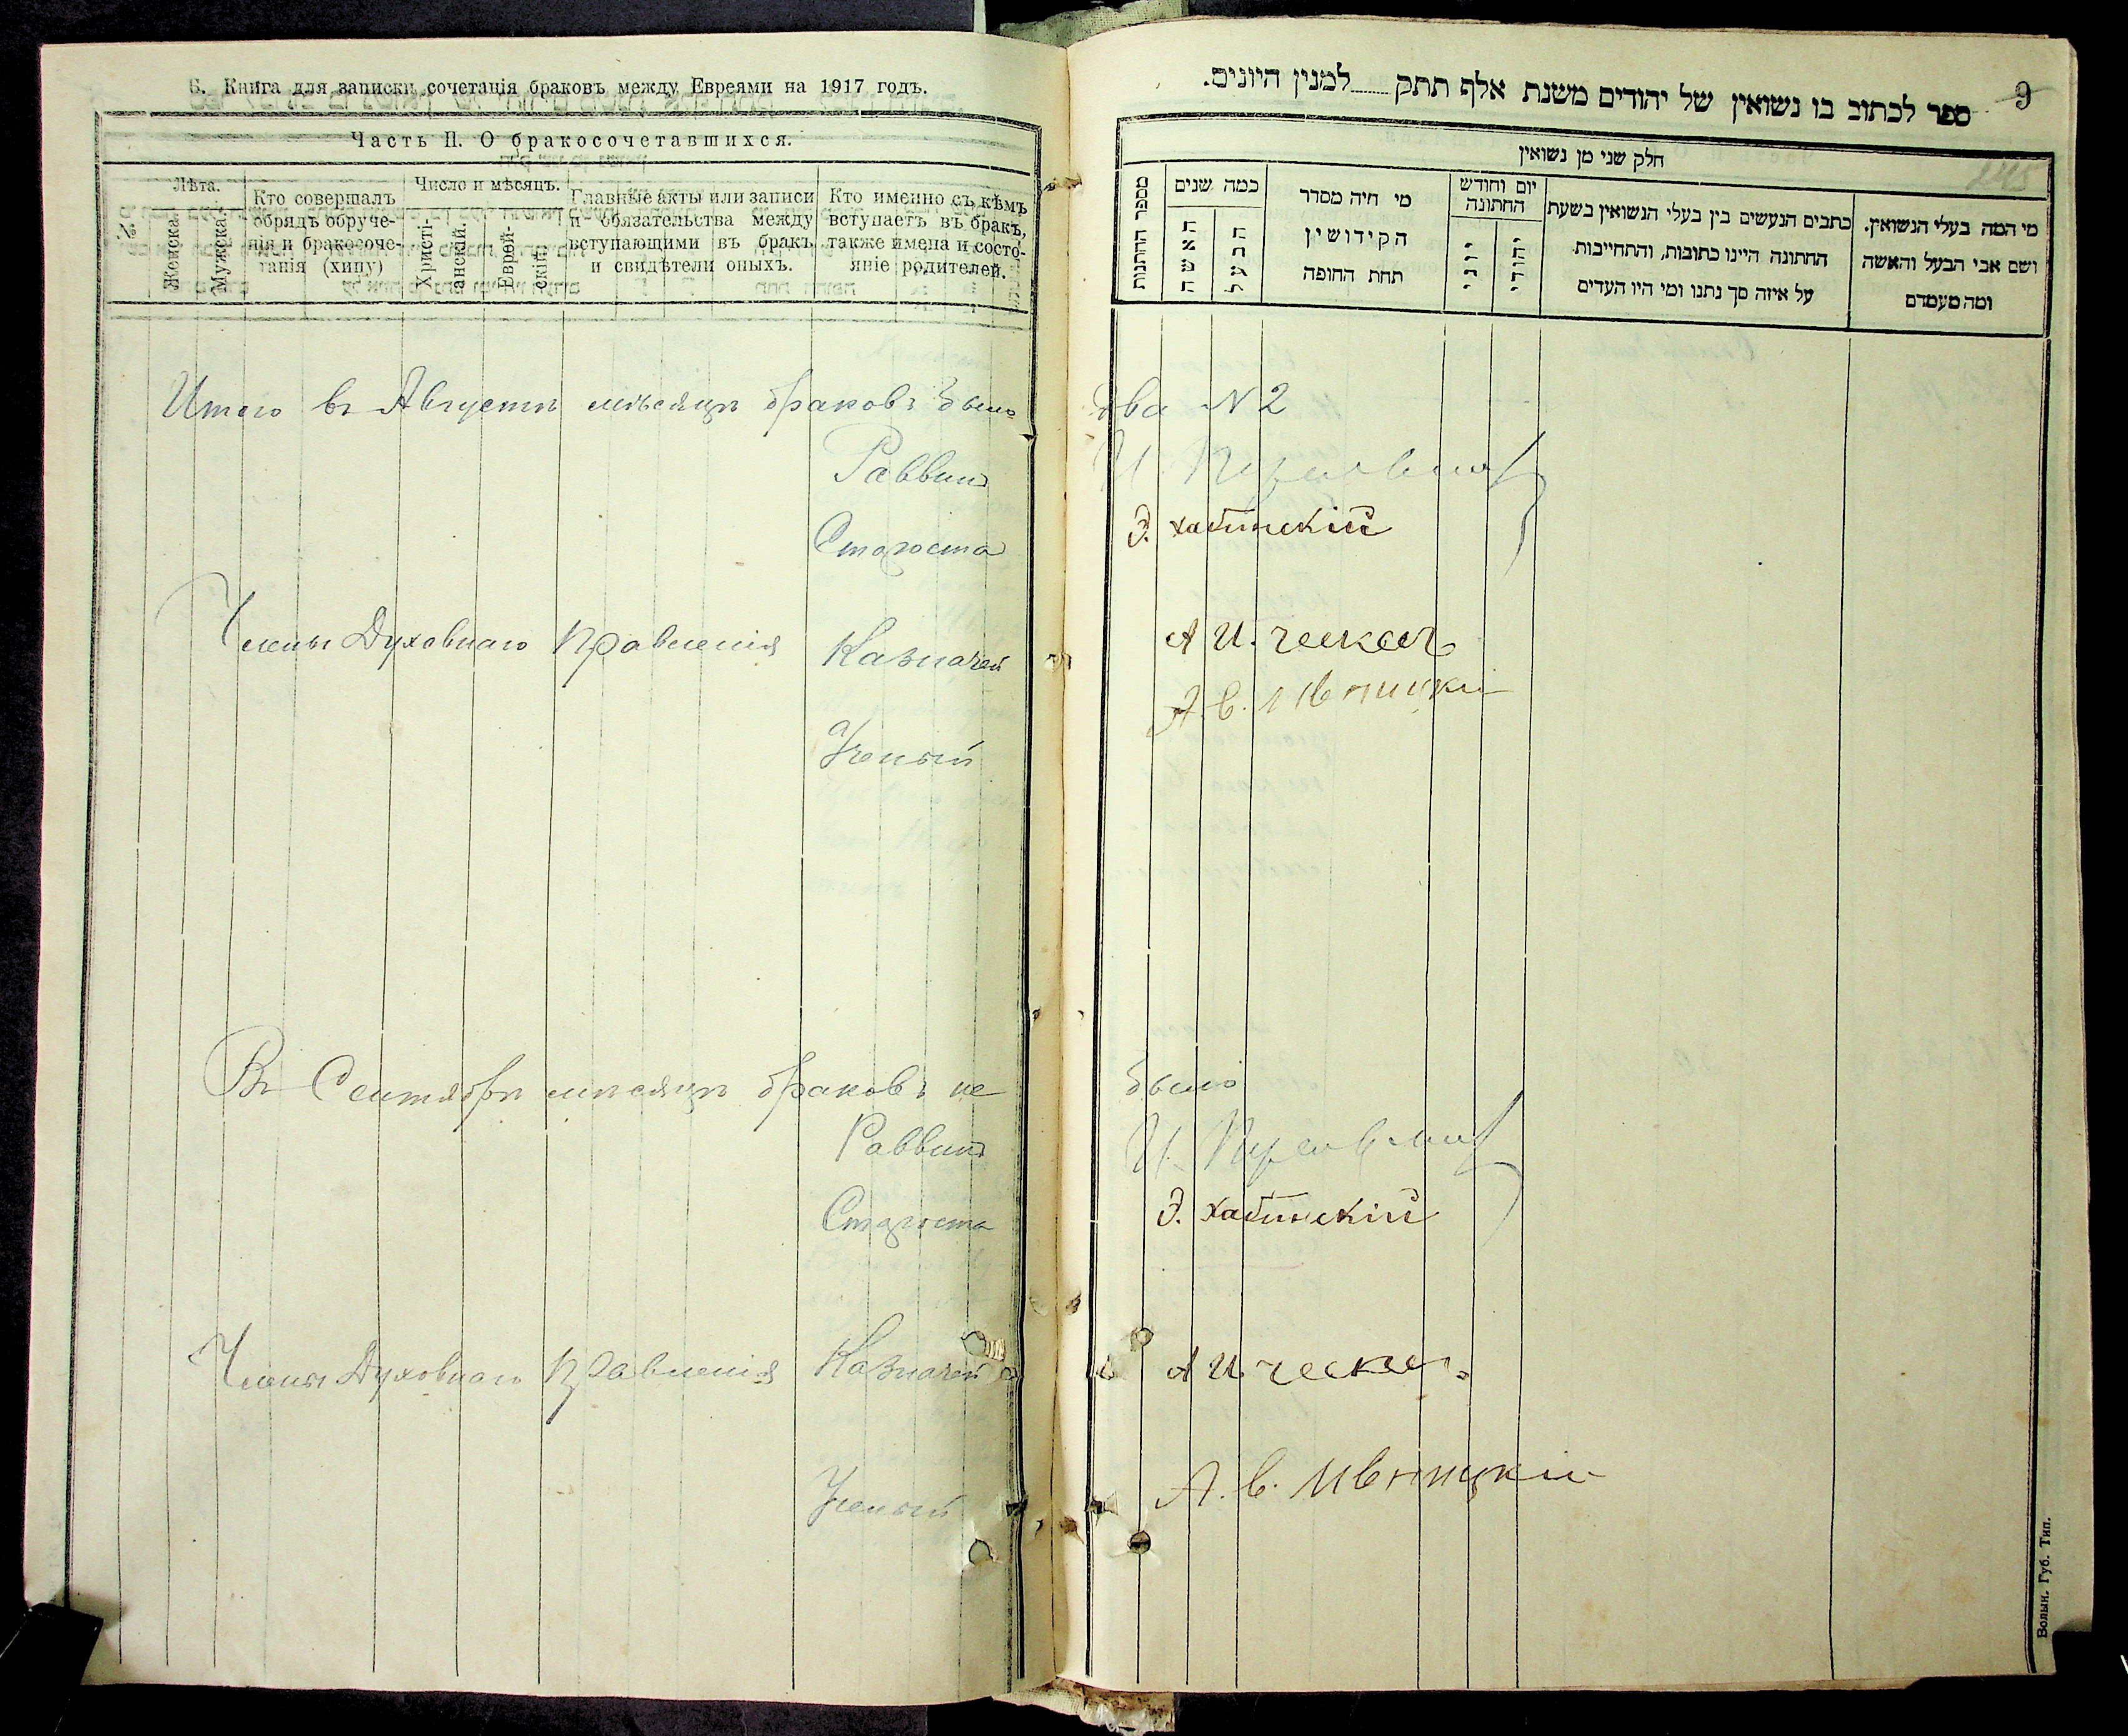 6. Книга для записки сочетанія браковъ между Евреями на 1917 годъ.
Часть II. О бракосочетавшихся.
№
Лѣта.
Женска.
Мужска.
Кто совершалъ
обрядъ обруче-
нія и бракосоче-
танія (хипу)
Число и мѣсяцъ.
Христі-
анскій.
Еврей-
скій.
Главные акты или записи
и обязательства между
вступающими въ бракъ
и свидѣтели оныхъ.
Кто именно съ кѣмъ
вступаетъ въ бракъ,
также имена и состо-
яніе родителей.
Итого въ Августѣ мѣсяцѣ браковъ было
Раввинъ
Староста
Члены Духовнаго Правленія Казначей
Ученый
Въ Сентябрѣ мѣсяцѣ браковъ не
Раввинъ
Староста
Члены Духовнаго Правленія Казначей
Ученый
9
ספר לכתוב בו נשואין של יהודים משנת אלף תתק למנין היונים.
חלק שני מן נשואין
מספר החתונות
כמה שנים
האשה
הבעל
מי היה מסדר
הקידושין
תחת החופה
יום וחודש
החתונה
יוני
יהודי
כתבים הנעשים בין בעלי הנשואין בשעת
החתונה היינו כתובות, והתחייבות
על איזה סך נתנו ומי היו העדים
מי המה בעלי הנשואין.
ושם אבי הבעל והאשה
ומה מעמדם
два №2
И.
Э. Хабинскій
А И.
А. В.
было
И.
Э. Хабинскій
А И.
А. В.
Волын. Губ. Тип.